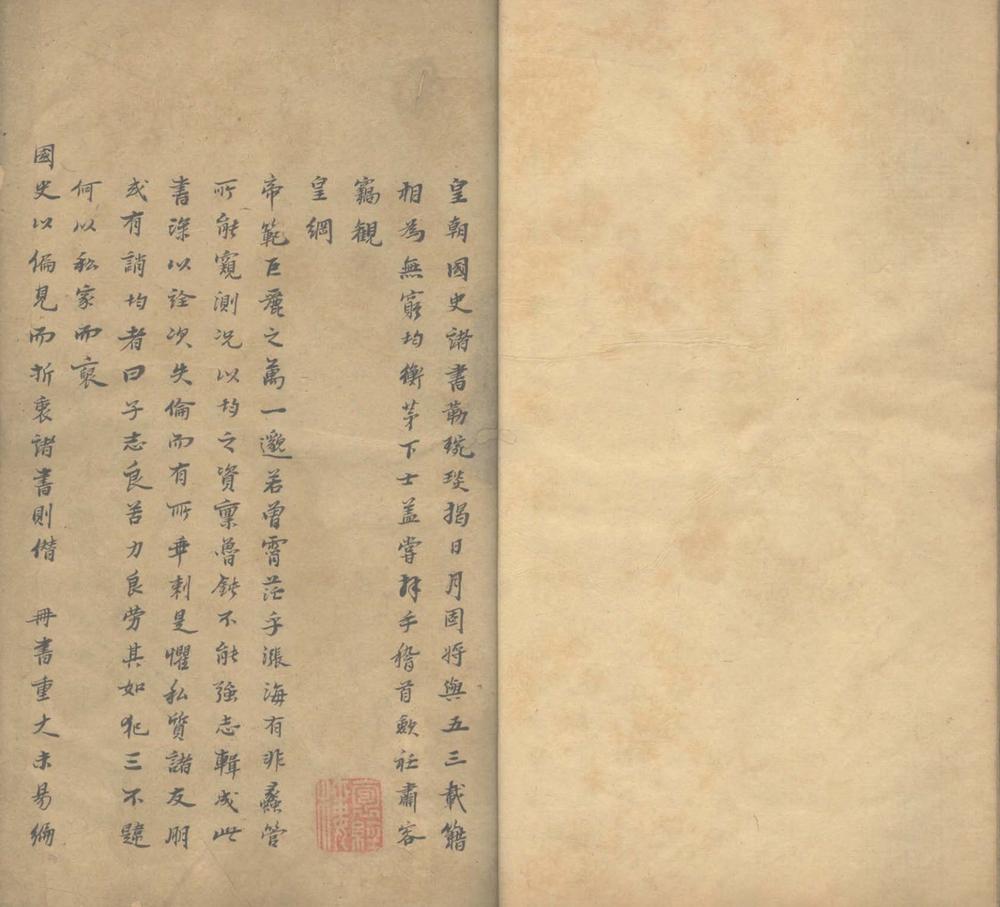 皇朝國史諸書勒琬琰揭日月固将與五三載籍
相為無窮均衡茅下士蓋嘗拜手稽首歛衽肅容
竊観
皇綱
帝範巨麗之萬一邈若曽霄茫乎漲海有非蠡管
所能窺測况以均之資稟魯鈍不能強志輯成此
書深以詮次失倫而有所乖剌是懼私質諸友朋
或有誚均者曰子志良苦力良勞其如犯三不韙
何以私家而裒
國史以偏見而折衷諸書則僭 冊書重大未易編